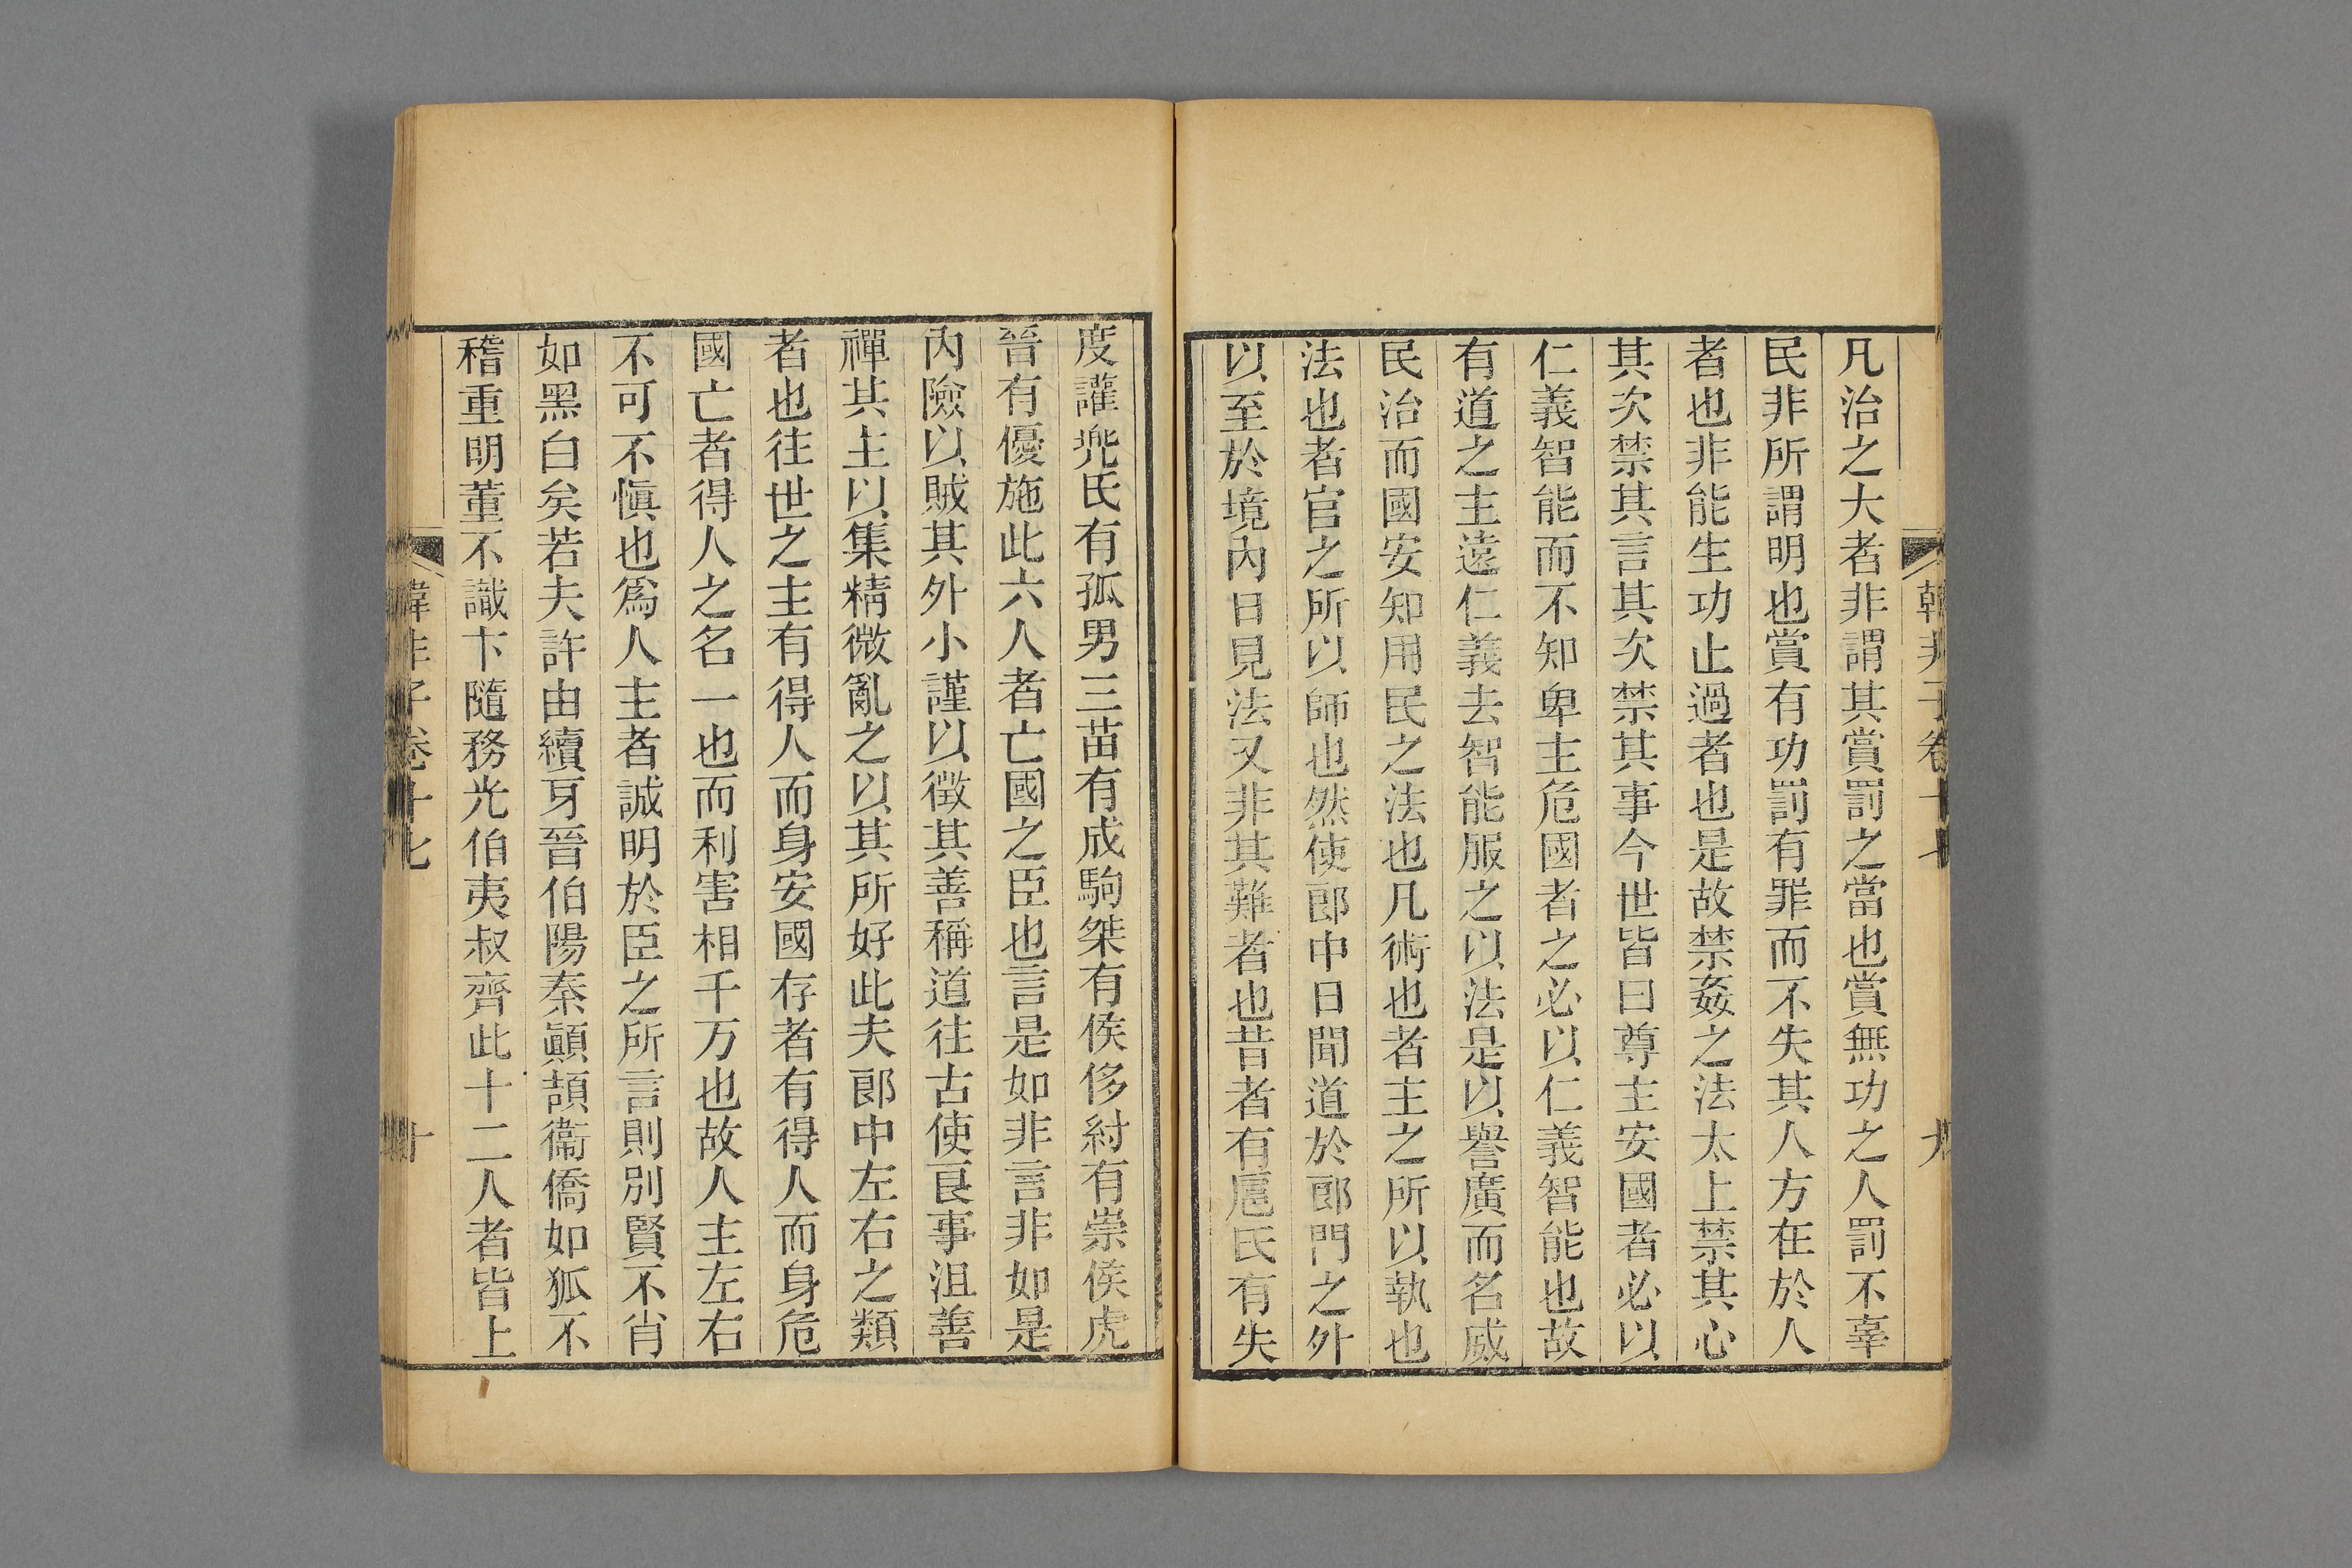 凡治之大者非謂其賞罰之當也賞無功之人罰不辜
民非所謂明也賞有功罰有罪而不失其人方在於人
者也非能生功止過者也是故禁姦之法太上禁其心
其次禁其言其次禁其事今世皆曰尊主安國者必以
仁義智能而不知卑主危國者之必以仁義智能也故
有道之主遠仁義去智能服之以法是以譽廣而名威
民治而國安知用民之法也凡術也者主之所以執也
法也者官之所以師也然使郎中日聞道於郎門之外
以至於境內日見法又非其難者也昔者有扈氏有失
度讙兜氏有孤男三苗有成駒桀有侯侈紂有崇侯虎
晉有優施此六人者亡國之臣也言是如非言非如是
內險以賊其外小謹以徵其善稱道往古使良事沮善
禪其主以集精微亂之以其所好此夫郎中左右之類
者也往世之主有得人而身安國存者有得人而身危
國亡者得人之名一也而利害相千万也故人主左右
不可不愼也爲人主者誠明於臣之所言則別賢不肖
如黑白矣若夫許由續牙晉伯陽秦顚頡衞僑如狐不
稽重明董不識卞隨務光伯夷叔齊此十二人者皆上
韓非子卷十七
九
韓非子卷十七
十